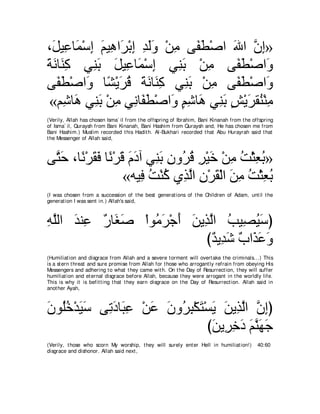 «إِنَّ اللهَ اصْطَفَى مِنْ وَلَدِ إِبْرَاهِيمَ إِسْمَاعِيلَ،
وَاصْطَفَى مِنْ بَنِي إِسْمَاعِيلَ بَنِي كِنَانَةَ
وَاصْطَفَى مِنْ بَنِي كِنَانَةَ قُرَيْشًا، وَاصْطَفَى
مِنْقُرَيْشٍ بَنِي هَاشِمٍ وَاصْطَفَانِي مِنْ بَنِي هَاشِم»
(Verily, Allah has chosen Isma`il from the offspring of Ibrahim, Bani Kinanah from the offspring
of Isma`il, Quraysh from Bani Kinanah, Bani Hashim from Quraysh and, He has chosen me from
Bani Hashim.) Muslim recorded this Hadith. Al-Bukhari recorded that Abu Hurayrah said that
the Messenger of Allah said,
«بُعِثْتُ مِنْ خَيْرِ قُرُونِ بَنِي آدَمَ قَرْنًا، فَقَرْنًا، حَتَّى
بُعِثْتُ مِنَ الْقَرْنِ الَّذِي كُنْتُ فِيه»
(I was chosen from a succession of the best generations of the Children of Adam, until the
generation I was sent in.) Allah's said,
(سَيُصِيبُ الَّذِينَ أَجْرَمُواْ صَغَارٌ عِندَ اللَّهِ
وَعَذَابٌ شَدِيدٌ)
(Humiliation and disgrace from Allah and a severe torment will overtake the criminals...) This
is a stern threat and sure promise from Allah for those who arrogantly refrain from obeying His
Messengers and adhering to what they came with. On the Day of Resurrection, they will suffer
humiliation and eternal disgrace before Allah, because they were arrogant in the worldly life.
This is why it is befitting that they earn disgrace on the Day of Resurrection. Allah said in
another Ayah,
(إِنَّ الَّذِينَ يَسْتَكْبِرُونَ عَنْ عِبَادَتِى سَيَدْخُلُونَ
جَهَنَّمَ دَخِرِينَ)
(Verily, those who scorn My worship, they will surely enter Hell in humiliation!) 40:60
disgrace and dishonor. Allah said next,